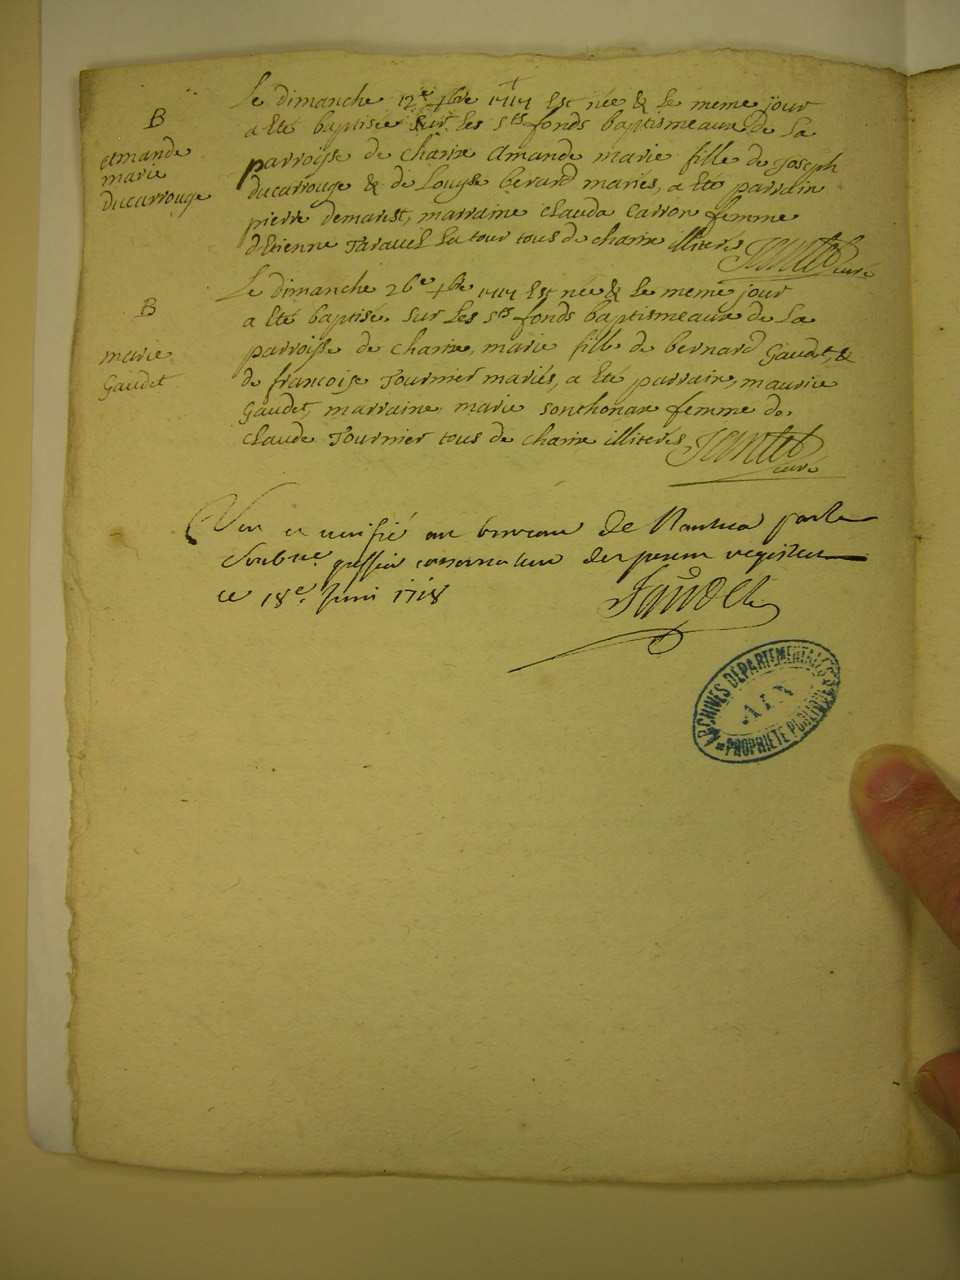 B
amande
marie
ducarrouge
Le dimanche 12e xbre 1717 Est née & Le meme jour
a Eté baptisée Sur Les Sts fonds baptismeaux de La
parroisse de charix amande marie fille de joseph
ducarrouge & de Louyse berard mariés, a Eté parrain
pierre demarest, marraine clauda carron femme
d'Etienne Taravel La tour tous de charix illiterés
curé
B
marie
Gaudet
Le dimanche 26e xbre 1717 Est née & Le meme jour
a Eté baptisé Sur Les Sts fonds baptismeaux de La
parroisse de charix, marie fille de bernard Gaudet, &
de françoise Tournier mariés, a Eté parrain, maurice
Gaudet, marraine, marie sonthonax femme de
claude Tournier tous de charix illiterés
curé
Veu et verifié au bureau de Nantua par le
Soubne greffier conservateur des presens registres
ce 18e Juin 1718
Jaudet
ARCHIVES DÉPARTEMENTALES
AIN
PROPRIÉTÉ PUBLIQUE